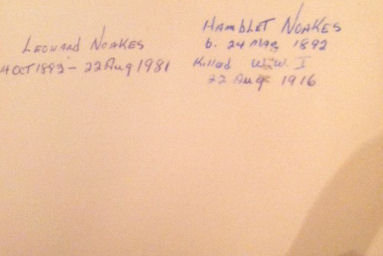 Leonard Noakes
4 Oct 1893 – 22 Aug 1981
Hamblet Noakes
b. 24 Mar 1892
Killed W.W. I
22 Aug 1916